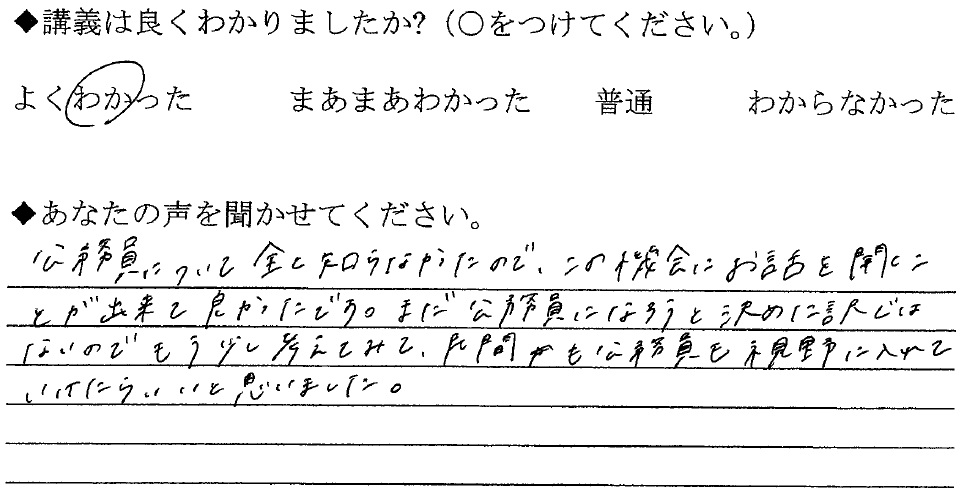 ◆講義は良くわかりましたか?（○をつけてください。）
よくわかった　まあまあわかった　普通　わからなかった
◆あなたの声を聞かせてください。
公務員について全く知らなかったので、この機会にお話を聞くこ
とが出来て良かったです。まだ公務員になろうと決めた訳では
ないのでもう少し考えてみて、民間も公務員も視野に入れて
いけたらいいと思いました。